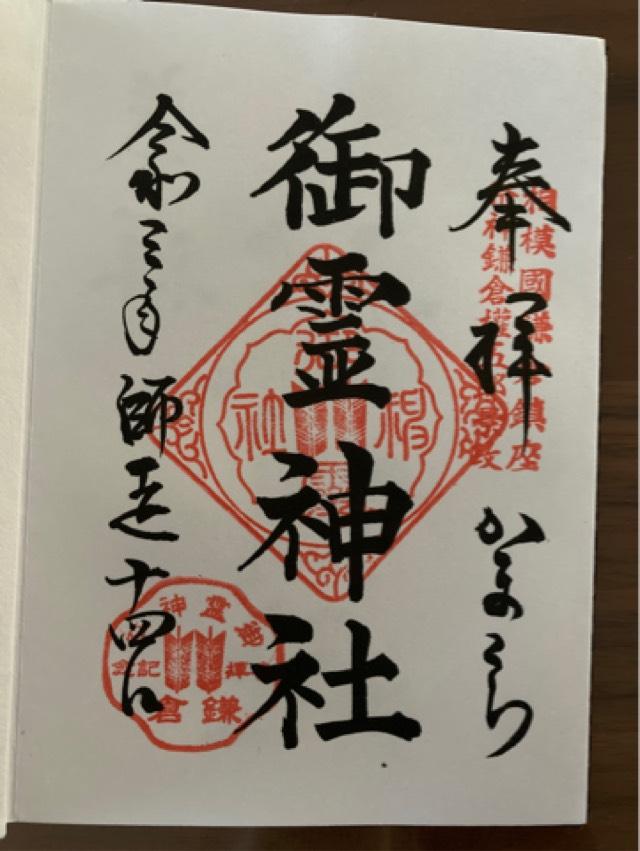 相模國鎌倉鎮座
祭神鎌倉權五郎景政
奉拝
かまくら
御霊神社
令和三年師走十四日
鎌倉